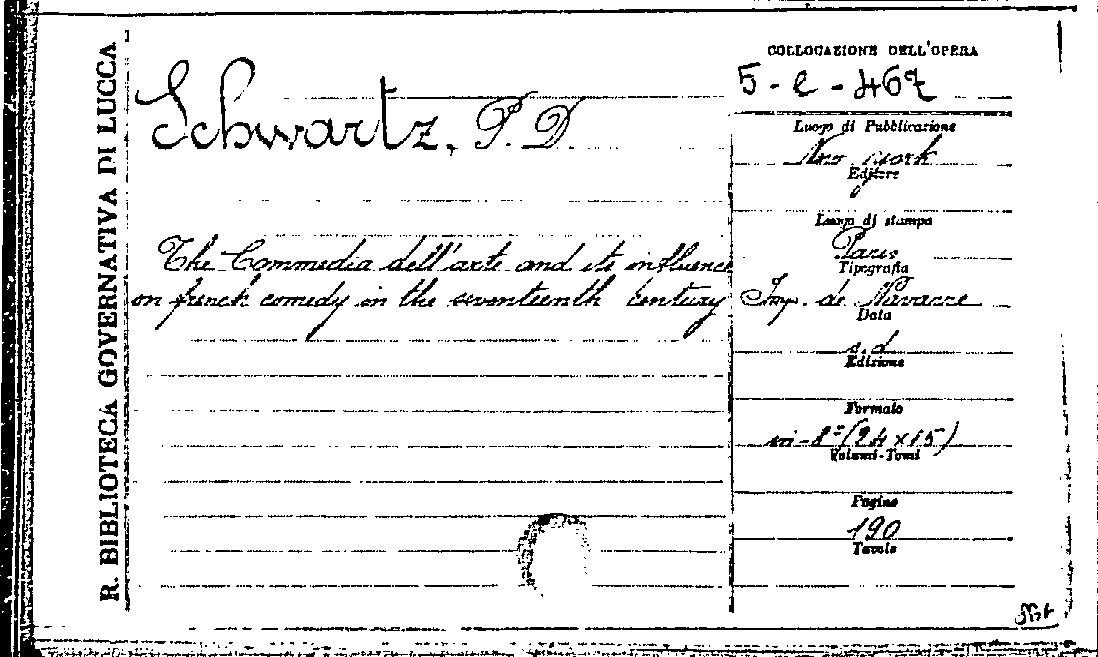 R. BIBLIOTECA GOVERNATIVA DI LUCCA
Schwartz, P. D.
The Commedia dell'arte and its influence
on french comedy in the seventeenth century
COLLOCAZIONE DELL'OPERA
5-e-467
Luogo di Pubblicazione
New york
Editore
Luogo di stampa
Paris
Tipografia
Imp. de Navarre
Data
s.d
Edizione
Formato
in-8º (24x15)
Volumi-Tomi
Pagine
190
Tavole